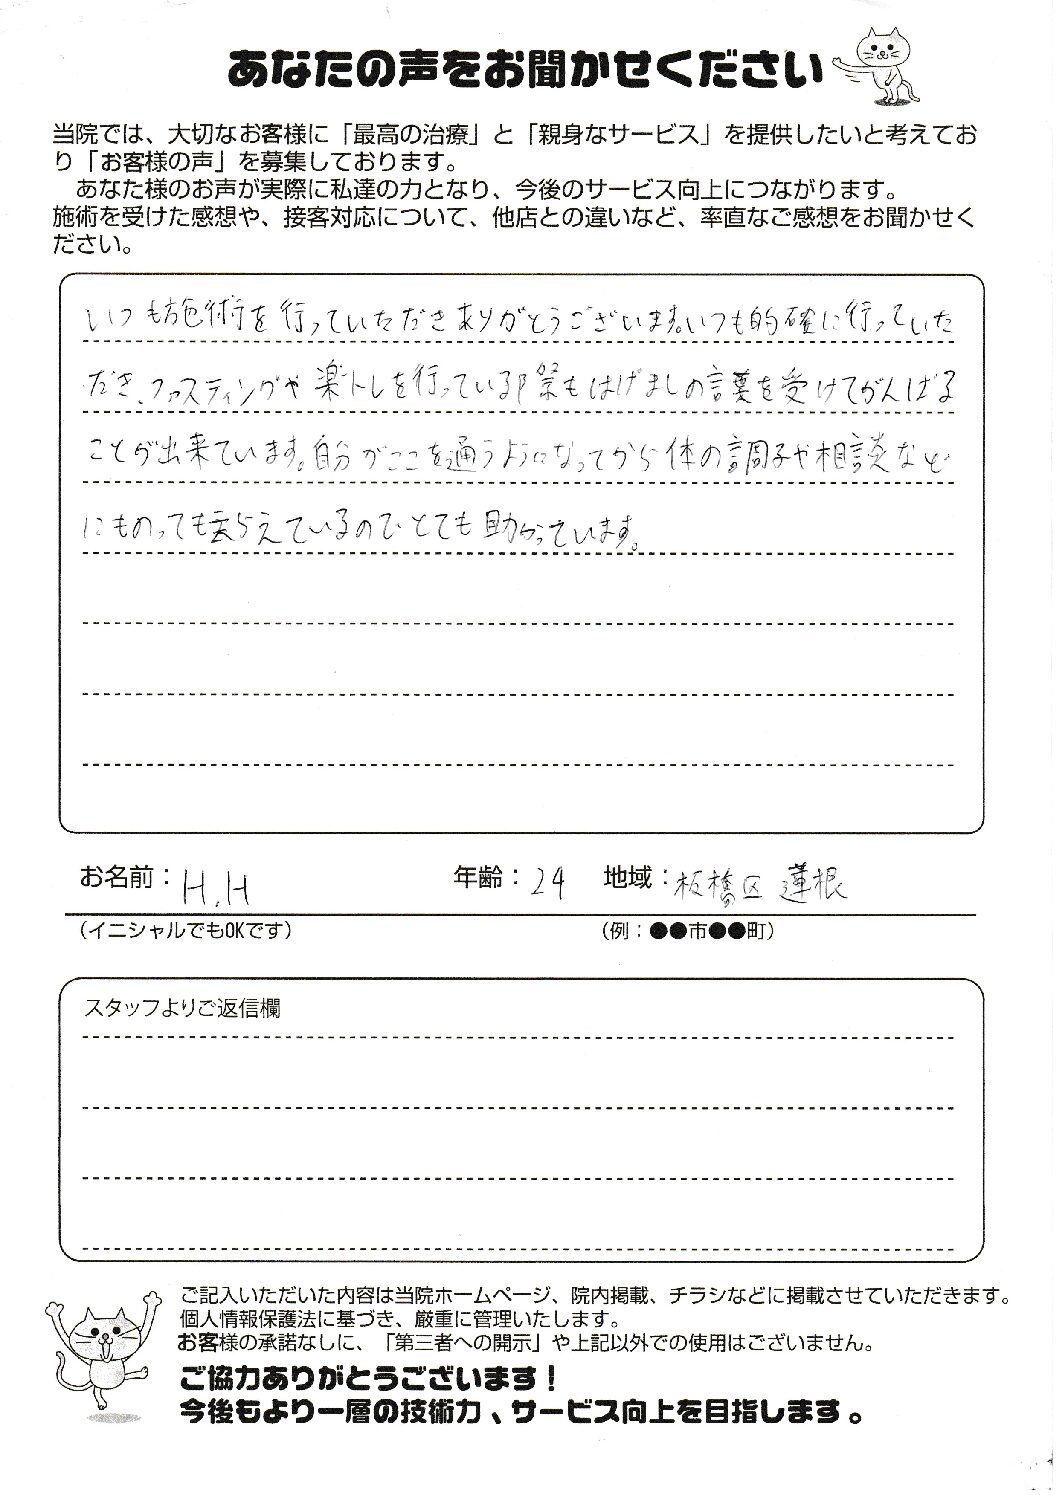 あなたの声をお聞かせください
当院では、大切なお客様に「最高の治療」と「親身なサービス」を提供したいと考えてお
り「お客様の声」を募集しております。
あなた様のお声が実際に私達の力となり、今後のサービス向上につながります。
施術を受けた感想や、接客対応について、他店との違いなど、率直なご感想をお聞かせく
ださい。
いつも施術を行っていただきありがとうございます。いつも的確に行っていた
だき、ファスティングや楽トレを行っている際もはげましの言葉を受けてがんばる
ことが出来ています。自分がここを通うようになってから体の調子や相談など
にものってもらえているのでとても助かっています。
お名前：H.H 年齢：24 地域：板橋区 蓮根
（イニシャルでもOKです） （例：●●市●●町）
スタッフよりご返信欄
ご記入いただいた内容は当院ホームページ、院内掲載、チラシなどに掲載させていただきます。
個人情報保護法に基づき、厳重に管理いたします。
お客様の承諾なしに、「第三者への開示」や上記以外での使用はございません。
ご協力ありがとうございます！
今後もより一層の技術力、サービス向上を目指します。